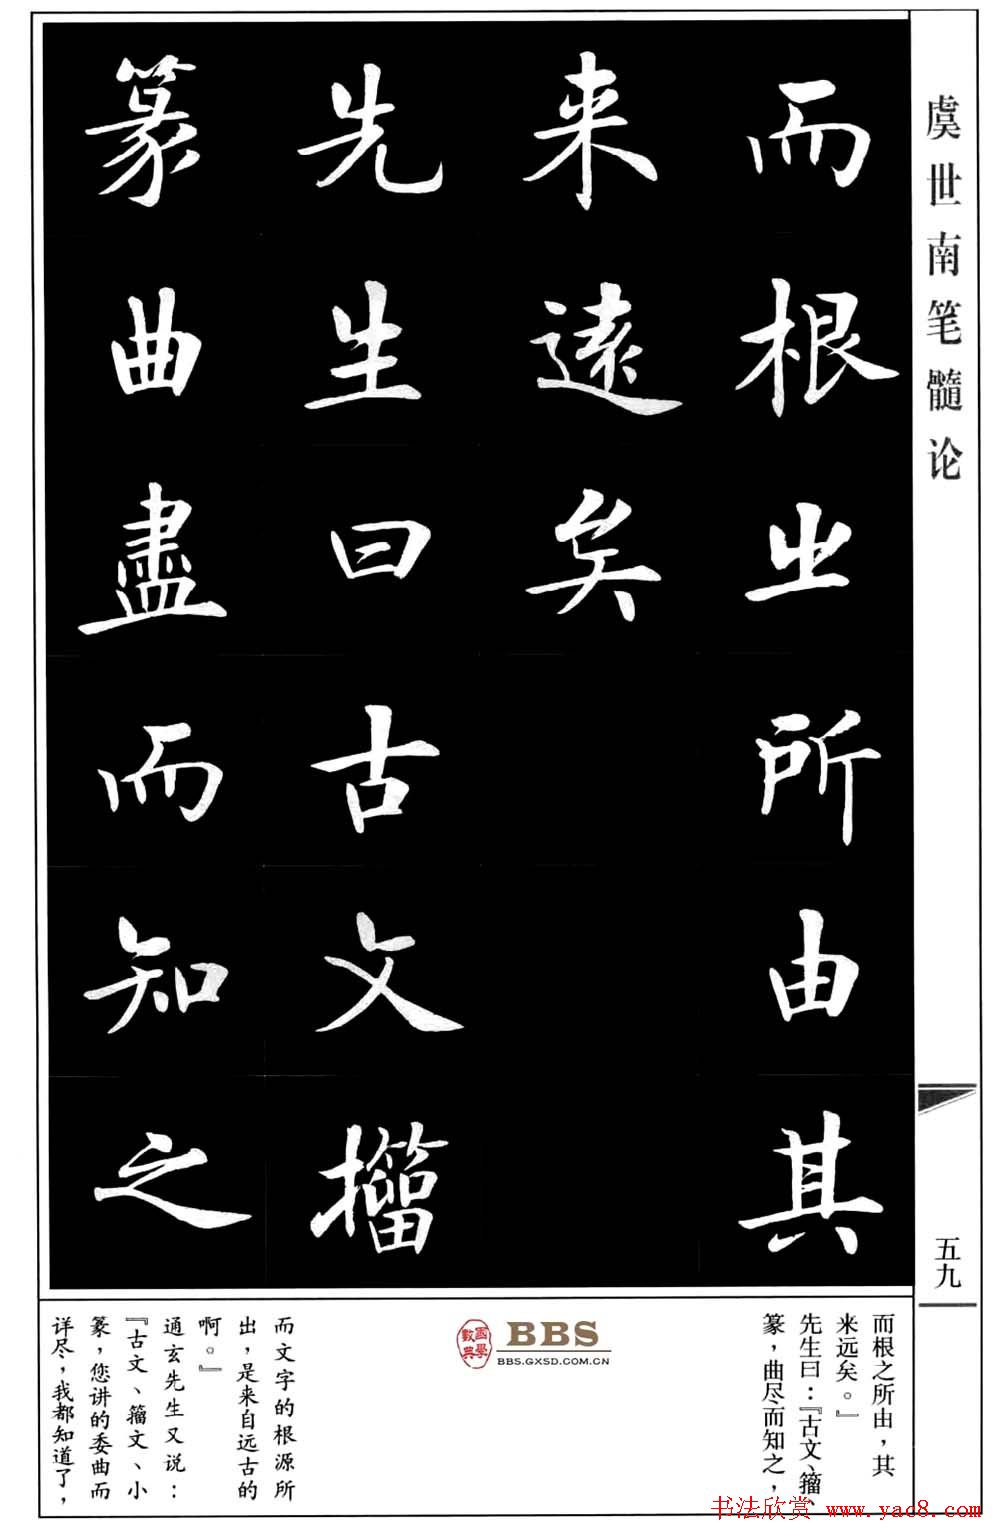 虞世南笔髓论
而根㞢所由其
来逺矣
先生曰古文㩅
篆曲盡而知之
五九
而根之所由，其
来远矣。』
先生曰：『古文、籀、
篆，曲尽而知之，
國學數典
BBS
BBS.GXSD.COM.CN
而文字的根源所
出，是来自远古的
啊。』
通玄先生又说：
『古文、籀文、小
篆，您讲的委曲而
详尽，我都知道了，
书法欣赏 www.yac8.com